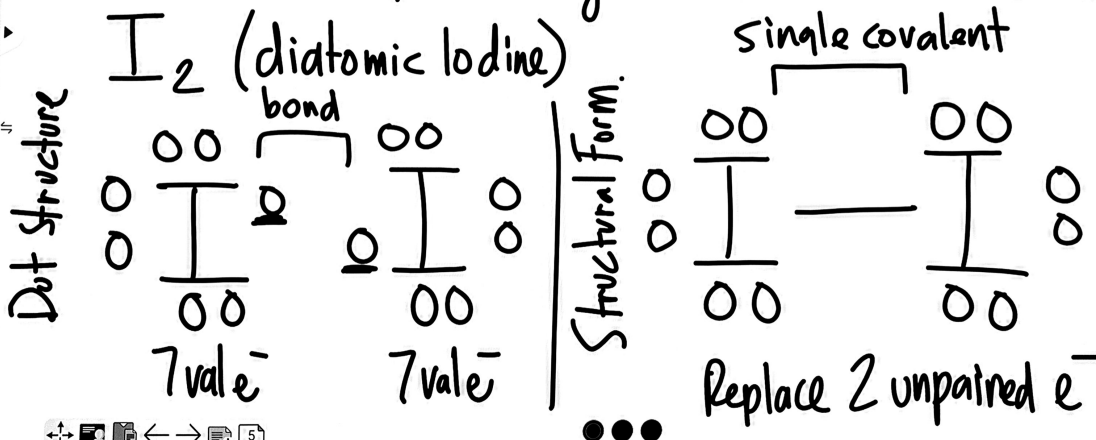 I2 (diatomic Iodine)
bond
Dot Structure
I
I
7 val e⁻
7 val e⁻
Structural Form.
single covalent
I — I
Replace 2 unpaired e⁻
5